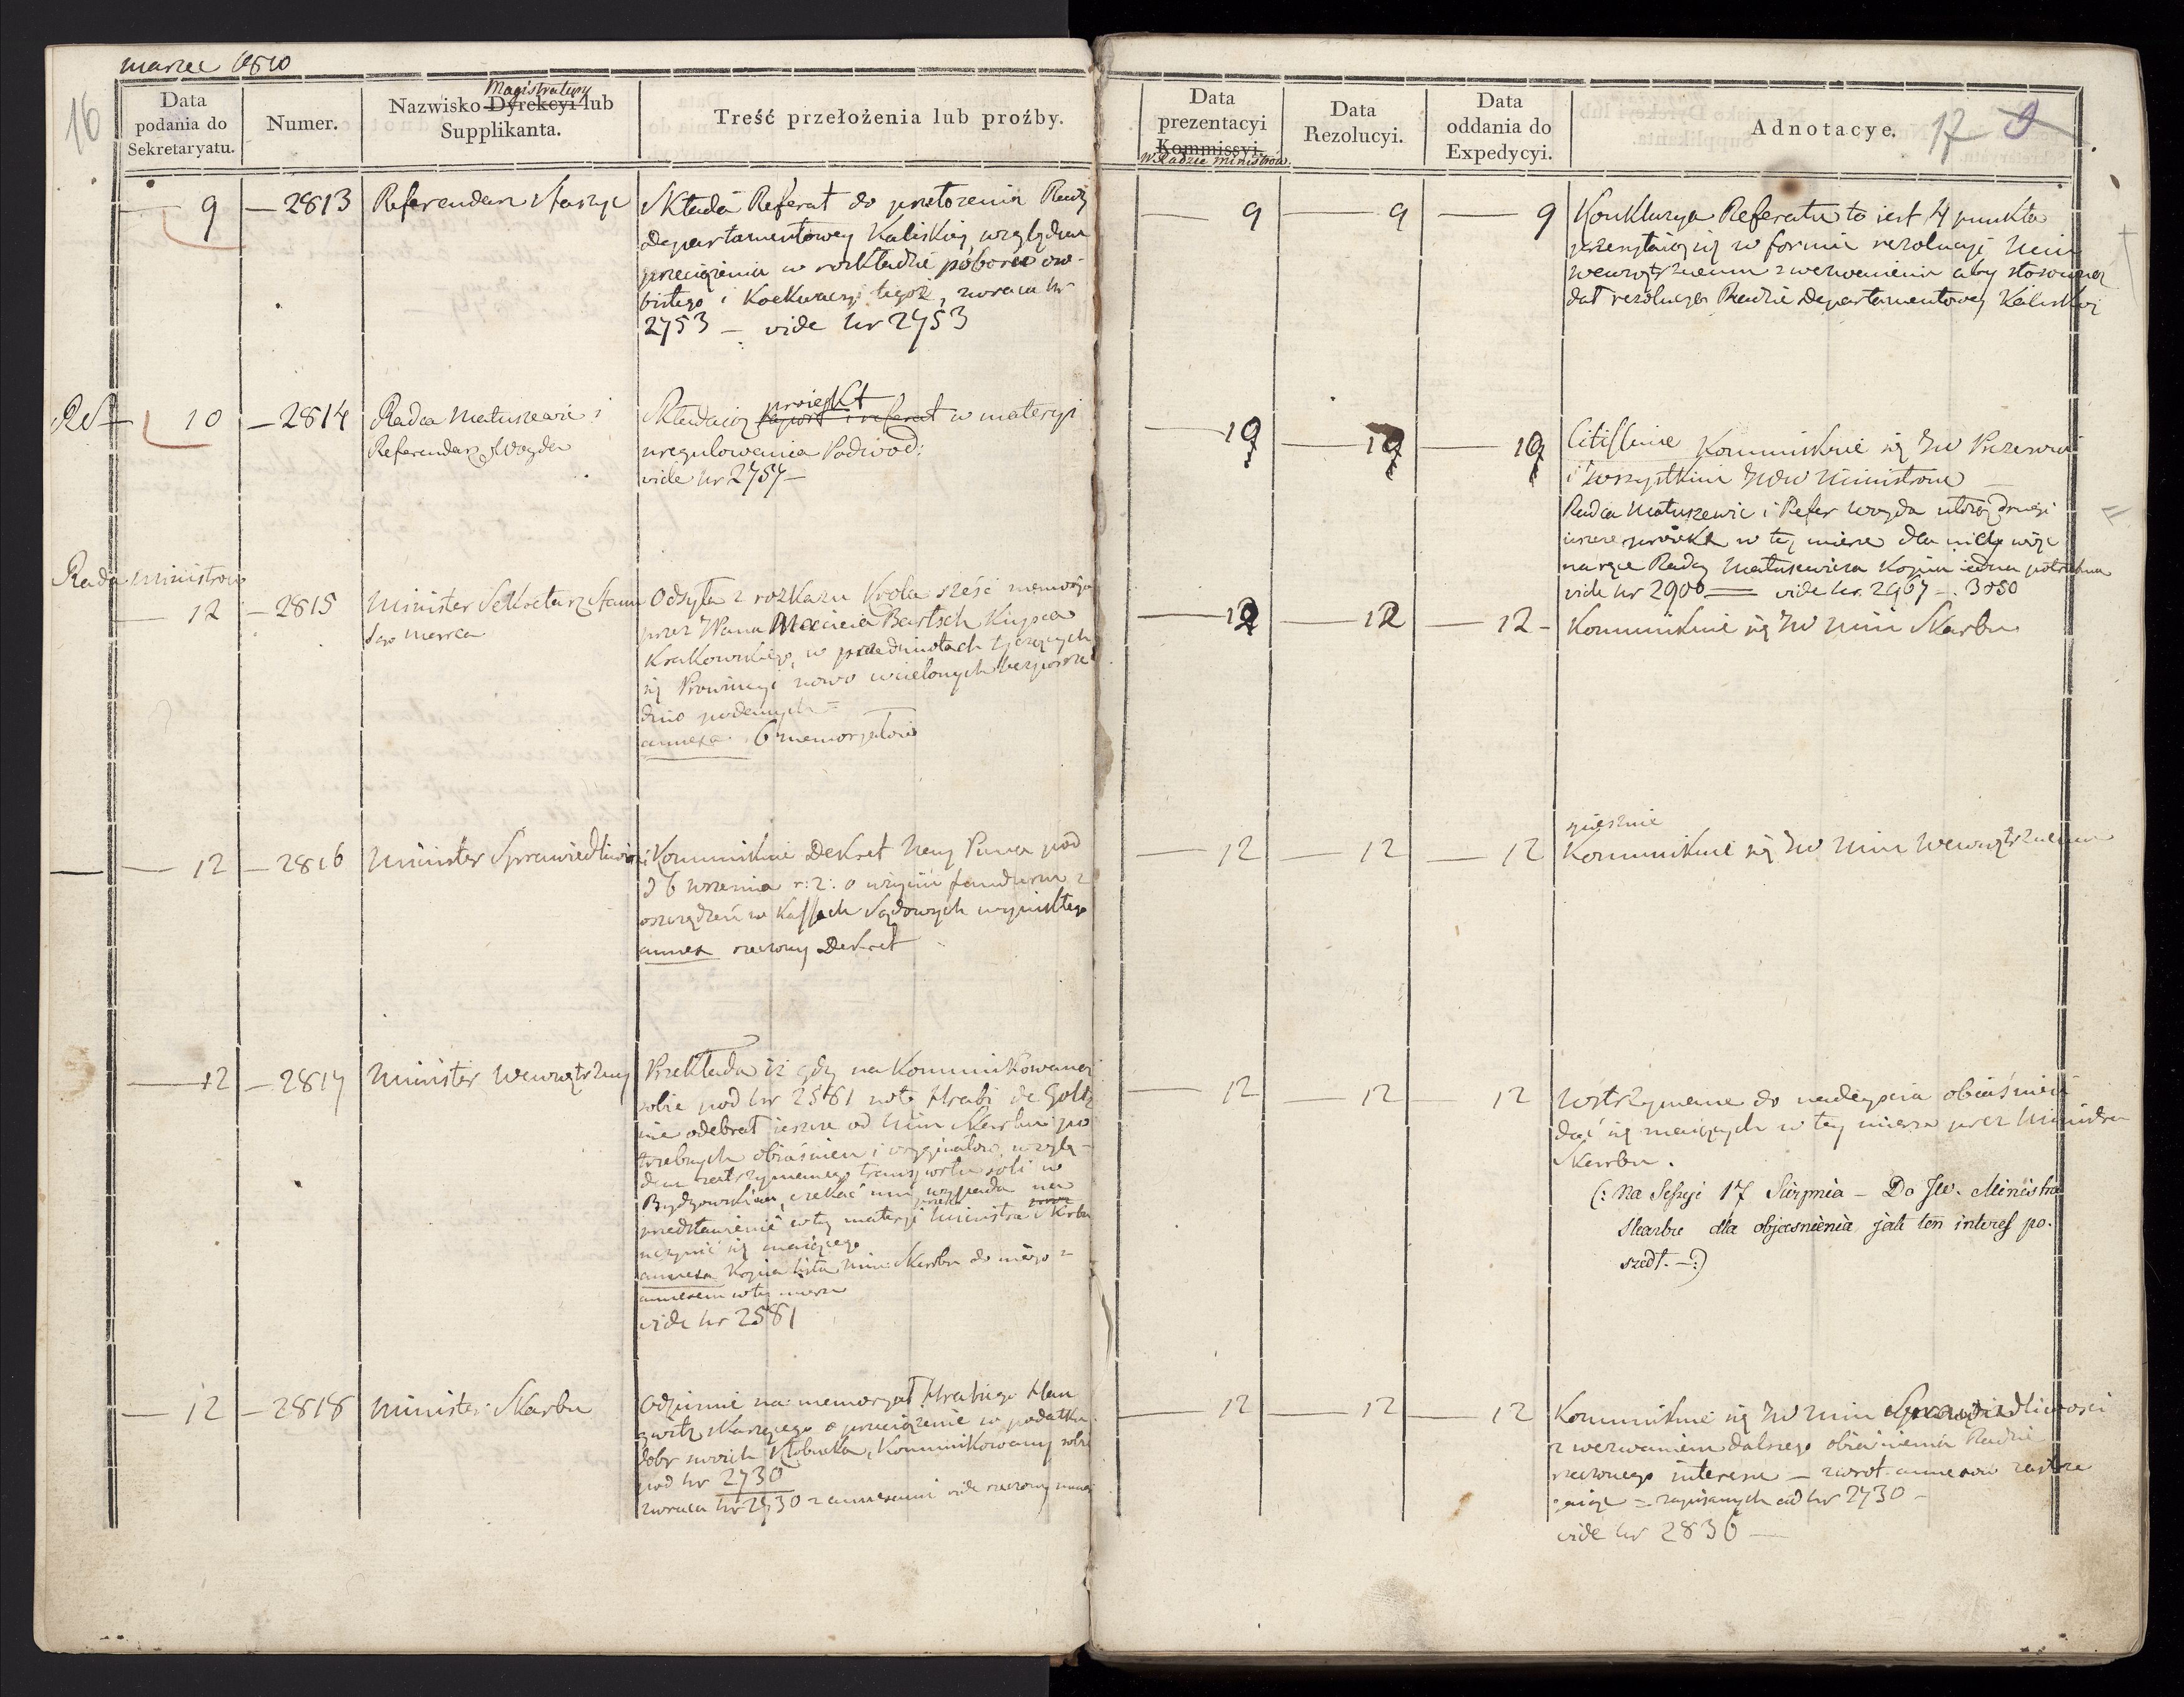 marzec 1810
16
Data
podania do
Sekretaryatu.
Numer.
Magistratury
Nazwisko Dyrekcyi lub
Supplikanta.
Treść przełożenia lub proźby.
Data
prezentacyi
Kommissyi.
w Radzie Ministrów.
Data
Rezolucyi.
Data
oddania do
Expedycyi.
Adnotacye.
17
9 — 2813 Referendarz Staszyc
Składa Referat do przełożenia Rady
Departamentowey Kaliskiey, względem
przeciążenia w rozkładzie poboru oso-
bistego i Koekwacyi tegoż, zwraca Nr
2753 — vide Nr 2753
9 — 9 — 9
Konkluzya Referatu to iest 4 punkta
przesyłaią się w formie rezolucyi Min
wewnętrznemu z wezwaniem aby stosowną
dał rezolucyą Radzie Departamentowey Kaliskiey
10 — 2814 Radca Matuszewic i
Referendarz Woyda
proiekt
Składaią raport i referat w materyi
uregulowania Podwod:
vide Nr 2757 —
10 — 10 — 10
Citissime Kommunikuie się JW Prezesowi
i wszystkim JWW Ministrom
Radca Matuszewic i Refer Woyda drugi
ieszcze proiekt w tey mierze dla
na ręce Radcy Matuszewica kopia iedna potrzebna
vide Nr 2900 — vide Nr. 2967 — 3050
Rada Ministrow
12 — 2815 Minister Sekretarz Stanu
Odsyła z rozkazu Krola sześć memoryał
przez JPana Macieia Bartsch Kupca
Krakowskiego, w przedmiotach tyczących
się Prowincyi nowo wcielonych bezpośre
dnio podanych =
annexa. 6 memoryałow
12 — 12 — 12 —
Kommunikuie się JW Min Skarbu
12 — 2816 Minister Sprawiedliwości
Kommunikuie Dekret Nay Pana pod
d 6 r: z: o użyciu funduszu z
oszczędzeń w Kassach Sądowych wynikłego
annex rzeczony Dekret
12 — 12 — 12
spiesznie
Kommunikuie się JW Min Wewnętrznemu
12 — 2817 Minister Wewnętrzny
Przekłada iż gdy na Kommunikowaną
sobie pod Nr 2581 notę Hrabi de Goltz
nie odebrał ieszcze od Min Skarbu po
trzebnych obiaśnien i oryginałow, wzglę-
dem zatrzymanego transportu soli w
Bydgowskiem, czekać mu wypada na
przedstawienie w tey materyi Ministra Skarbu
uczynić się maiącego
annexa Kopia listu Min: Skarbu do niego z
annexem w tey mierze
vide Nr 2581
12 — 12 — 12
Wstrzymane do nadeyścia obiaśnień
dać się maiących w tey mierze przez Ministra
Skarbu.
(: Na Sessyi 17 Sierpnia — Do JW. Ministra
Skarbu dla objaśnienia jak ten interes po-
szedł. —:)
12 — 2818 Minister Skarbu
Odpowie na memoryał Hrabiego Han
skarżącego o przeciążenie w podatku
dobr swoich Kłobucka, Kommunikowany sobie
pod Nr 2730
zwraca Nr 2730 z annexami vide rzeczony numer
12 — 12 — 12
Kommunikuie się JW Min Sprawiedliwości
z wezwaniem dalszego obiaśnienia Radzie
rzeczonego interesu — zwrot annexow zastrze
gaiąc = zapisanych ad Nr 2730 —
vide Nr 2836 —